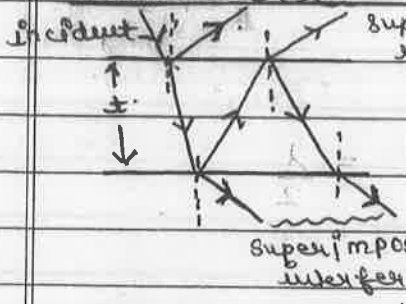 incident
sup
t
superimpos
interfer